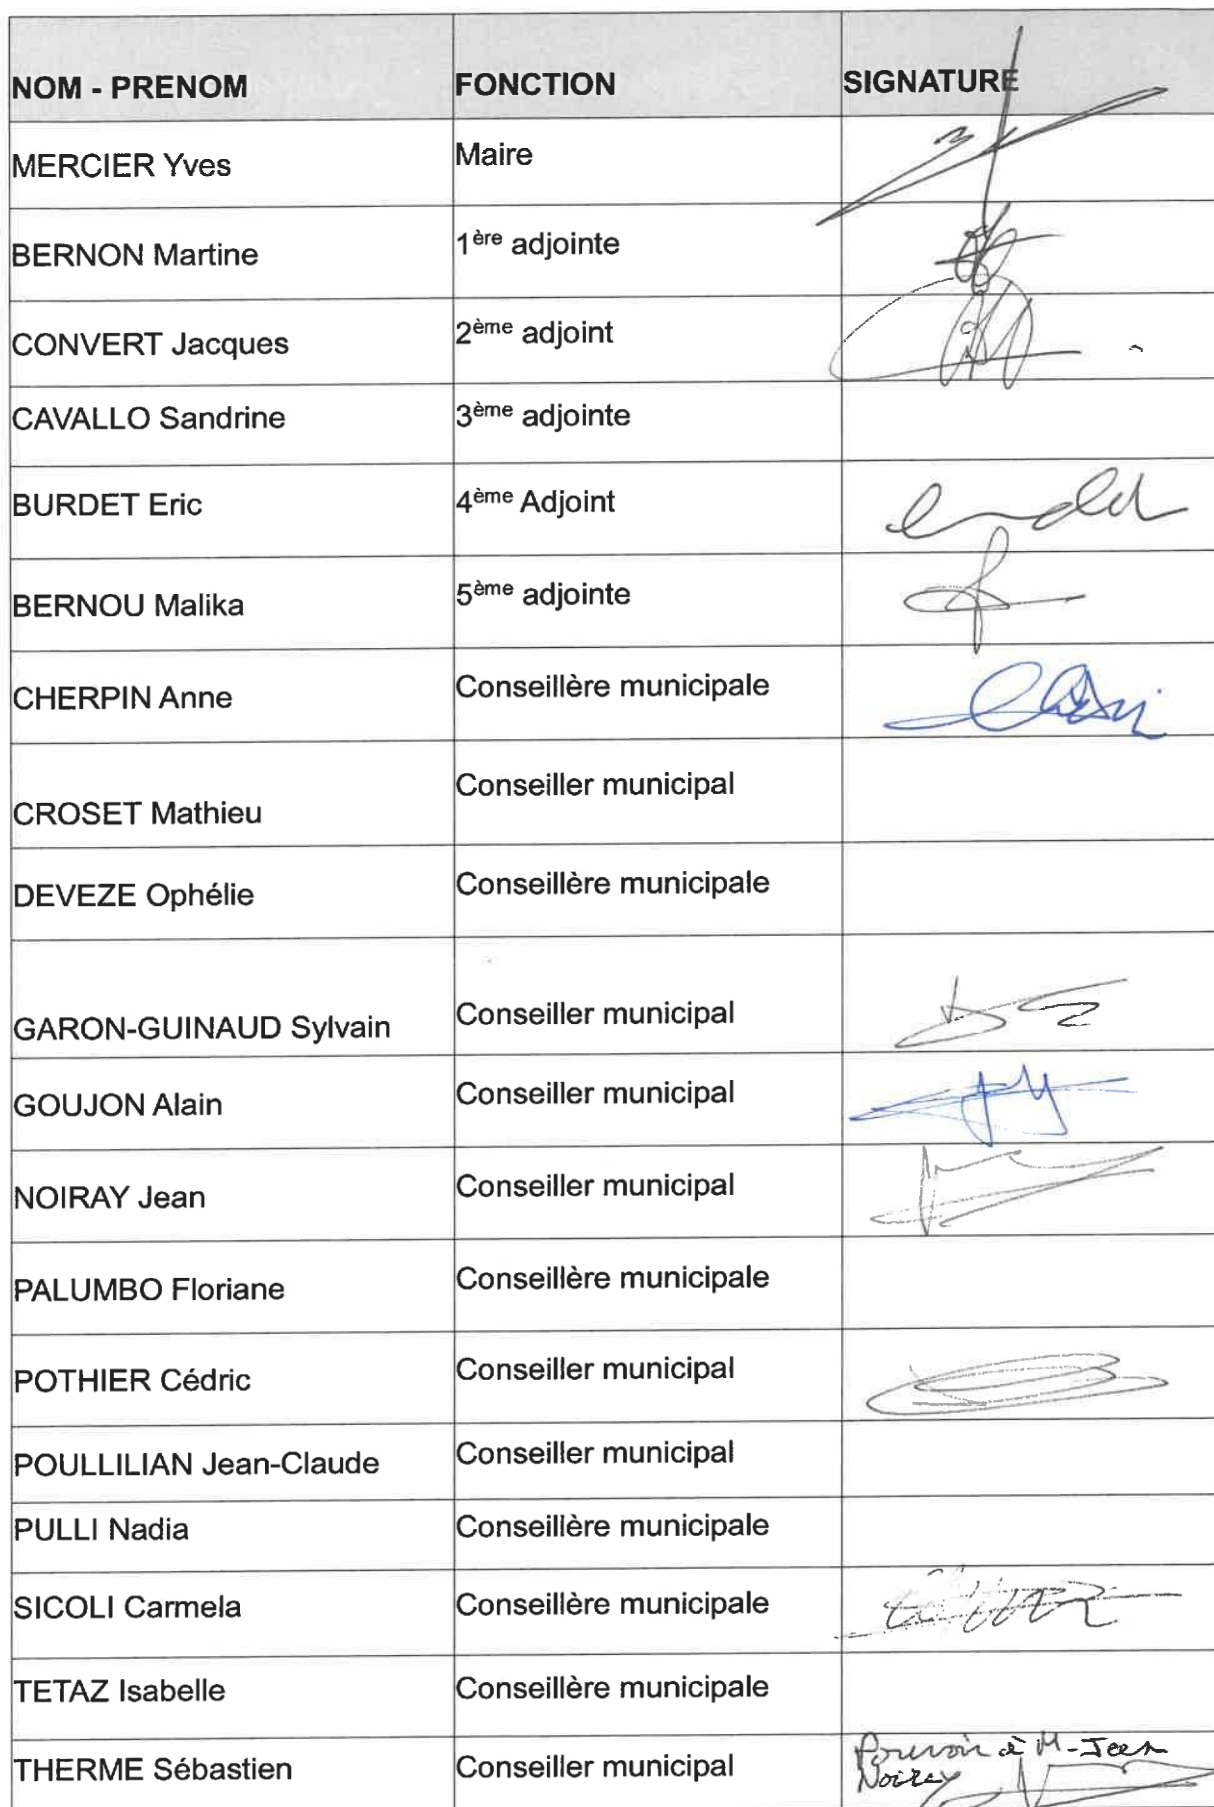 NOM - PRENOM FONCTION SIGNATURE
MERCIER Yves Maire
BERNON Martine 1ère adjointe
CONVERT Jacques 2ème adjoint
CAVALLO Sandrine 3ème adjointe
BURDET Eric 4ème Adjoint
BERNOU Malika 5ème adjointe
CHERPIN Anne Conseillère municipale
CROSET Mathieu Conseiller municipal
DEVEZE Ophélie Conseillère municipale
GARON-GUINAUD Sylvain Conseiller municipal
GOUJON Alain Conseiller municipal
NOIRAY Jean Conseiller municipal
PALUMBO Floriane Conseillère municipale
POTHIER Cédric Conseiller municipal
POULLILIAN Jean-Claude Conseiller municipal
PULLI Nadia Conseillère municipale
SICOLI Carmela Conseillère municipale
TETAZ Isabelle Conseillère municipale
THERME Sébastien Conseiller municipal Pouvoir à M-Jean
Noiray